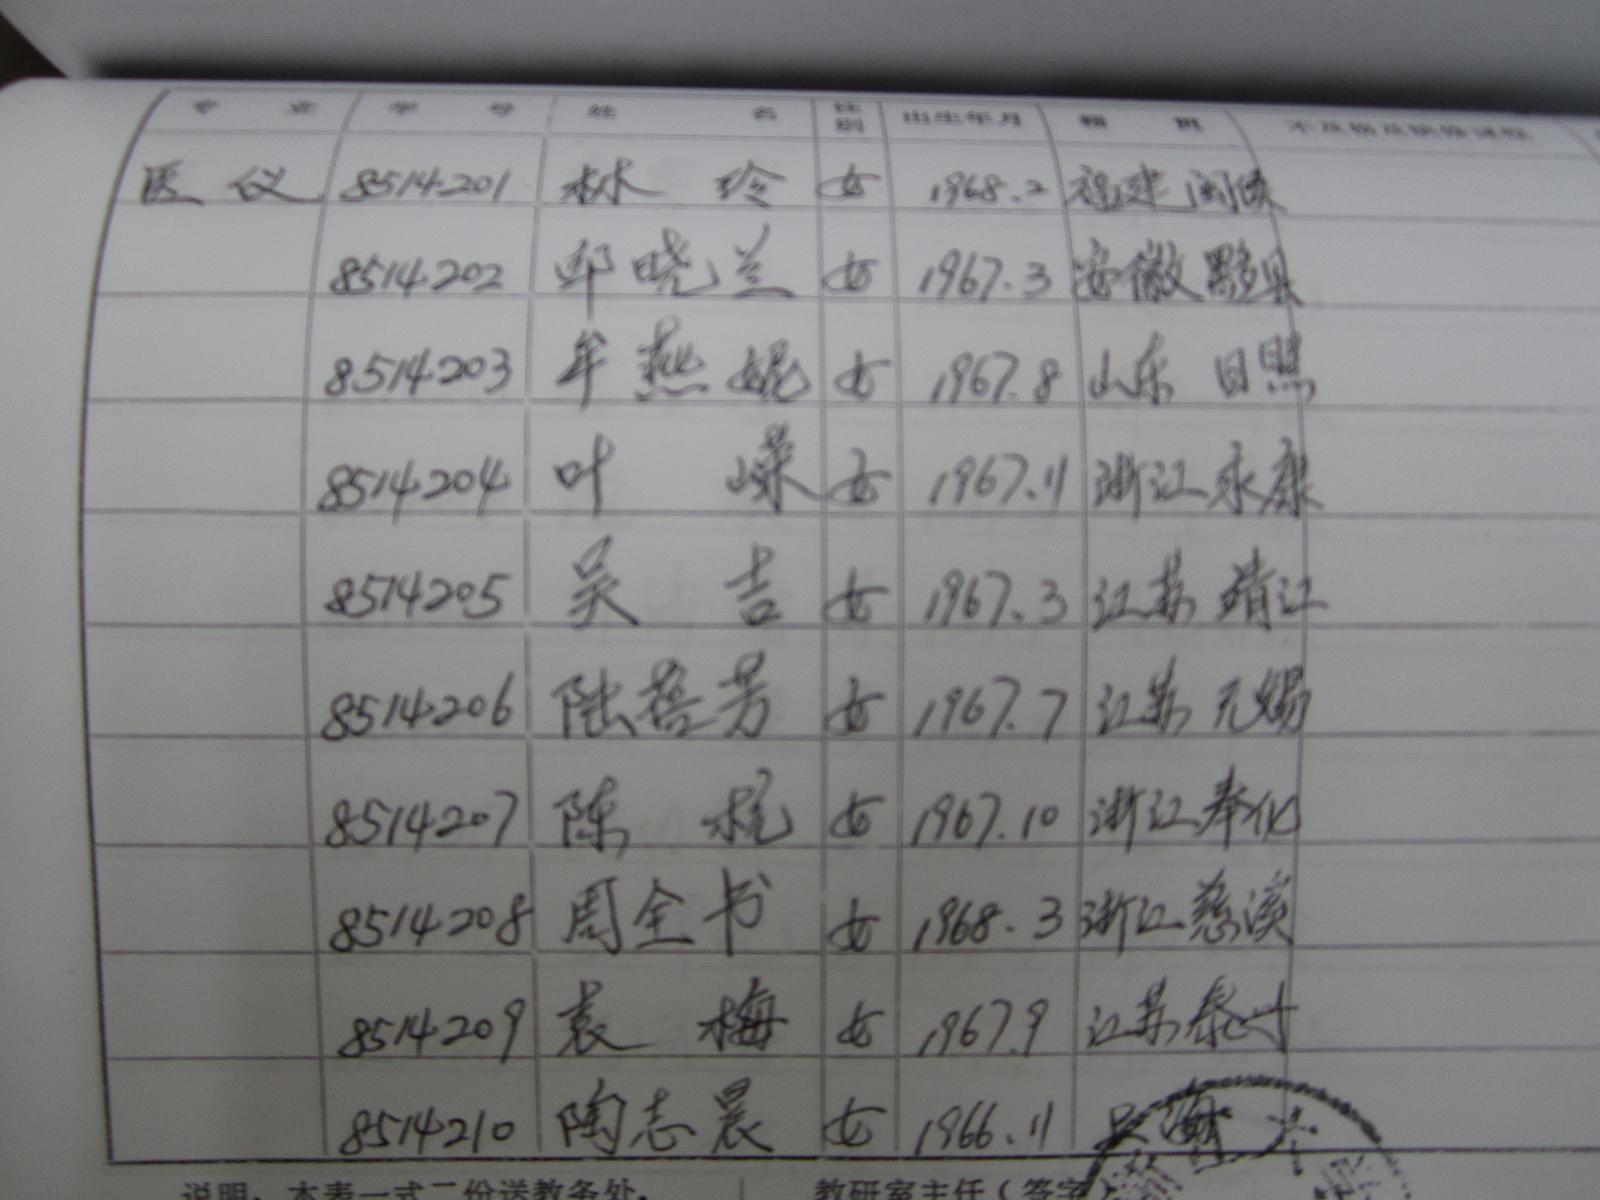 专 业 学 号 姓 名 性别 出生年月 籍 贯 不及格及缺修课程
医 仪 8514201 林 玲 女 1968.2 福建 闽侯
8514202 邱晓兰 女 1967.3 安徽黟县
8514203 牟燕妮 女 1967.8 山东 日照
8514204 叶 嵘 女 1967.11 浙江永康
8514205 吴 吉 女 1967.3 江苏 靖江
8514206 陆蓓芳 女 1967.7 江苏 无锡
8514207 陈 女 1967.10 浙江奉化
8514208 周全书 女 1968.3 浙江慈溪
8514209 袁 梅 女 1967.9 江苏泰兴
8514210 陶志晨 女 1966.11 上海
说明：本表一式二份送教务处， 教研室主任（签字）